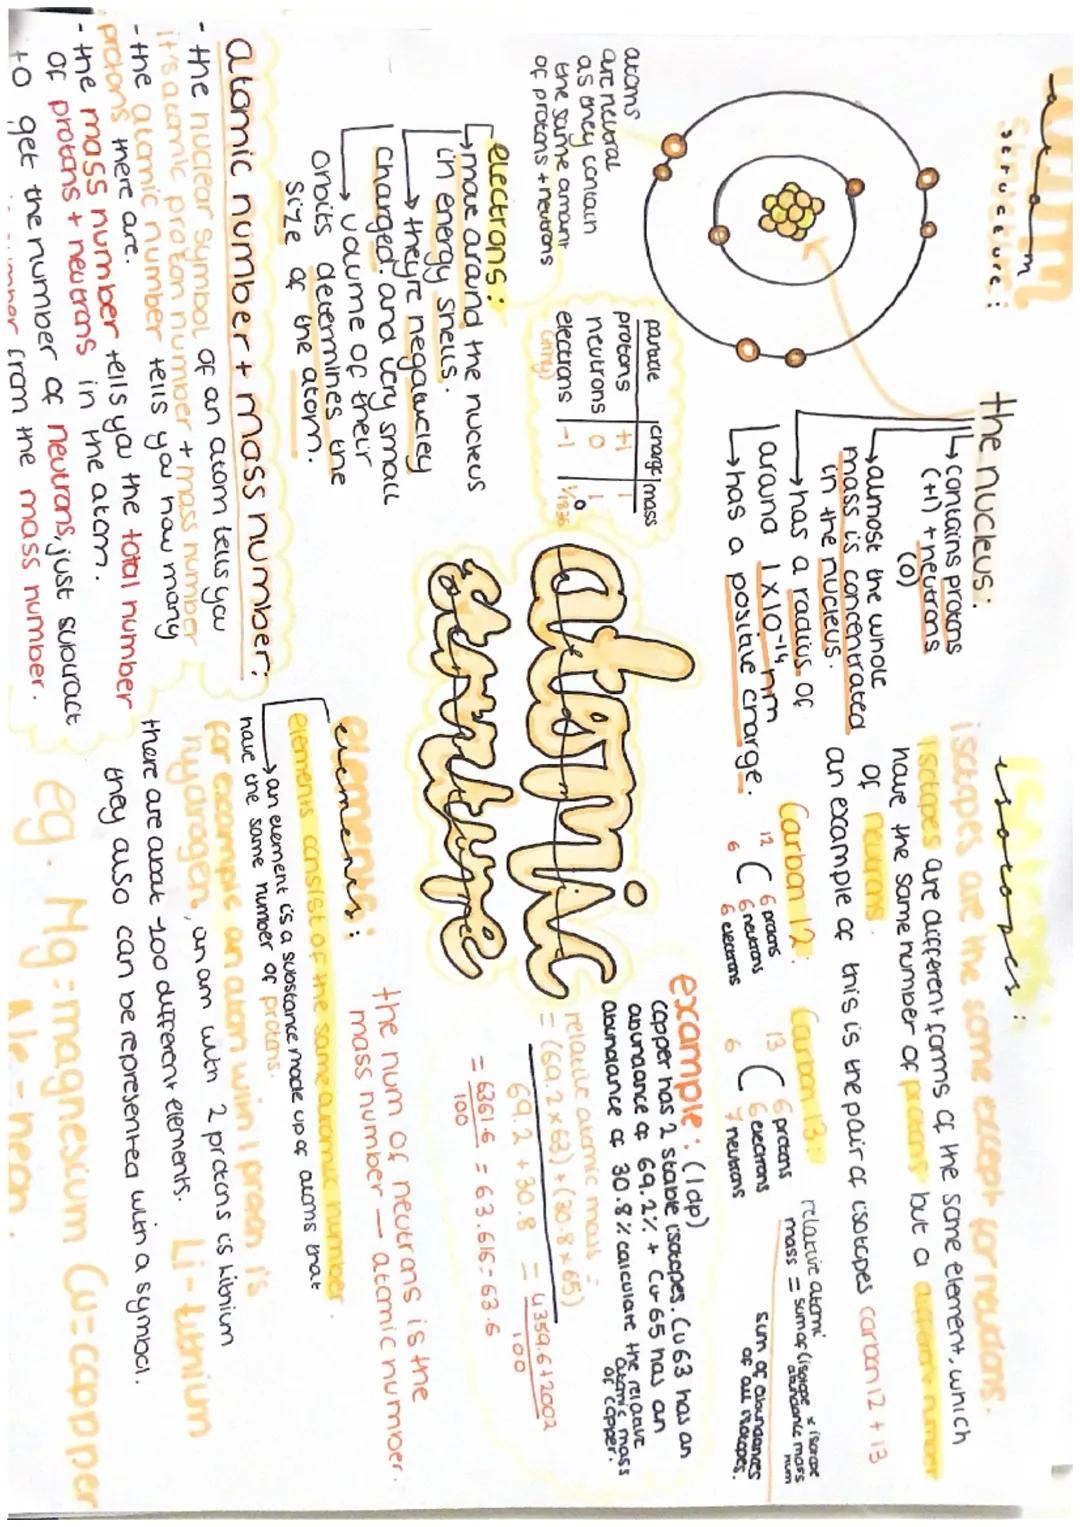 atom
structure:
the nucleus:
contains protons
(+1) + neutrons
(0)
almost the whole
mass is concentrated
in the nucleus.
has a radius of
around 1x10-14 nm
has a positive charge.
atoms
are neutral
as they contain
the same amount
of protons + neutrons
particle charge mass
protons +1 1
neutrons 0 1
electrons -1 1/1836
(tiny)
0
electrons:
move around the nucleus
in energy shells.
they're negatively
charged. and very small
volume of their
orbits determines the
size of the atom.
atomic number + mass number:
- the nuclear symbol of an atom tells you
it's atomic proton number + mass number
- the atomic number tells you how many
protons there are.
- the mass number tells you the total number
of protons + neutrons in the atom.
to get the number of neutrons, just subtract
from the mass number.
atomic
structure
isotopes:
isotopes are the same except for neutrons.
isotopes are different forms of the same element, which
have the same number of protons but a different number
of neutrons.
an example of this is the pair of isotopes carbon 12 + 13
Carbon 12:
12
C
6
6 protons
6 neutrons
6 electrons
Carbon 13:
13
C
6
6 protons
6 electrons
7 neutrons
relative atomic
mass = sum of (isotope abundance x isotope mass num
sum of abundances
of all isotopes.
example: (1dp)
copper has 2 stable isotopes. Cu 63 has an
abundance of 69.2% + Cu 65 has an
abundance of 30.8% calculate the relative
atomic mass
of copper.
relative atomic mass =
= (69.2 x 63) + (30.8 x 65)
69.2 + 30.8
= 4359.6 + 2002
100
= 6361.6 = 63.616 = 63.6
100
the num of neutrons is the
mass number — atomic number.
elements:
elements consist of the same atomic number.
an element is a substance made up of atoms that
have the same number of protons.
for example an atom with 1 proton is
hydrogen, an am with 2 protons is lithium
there are about 100 different elements.
they also can be represented with a symbol.
Li - lithium
eg. Mg = magnesium Cu = copper
Ne - neon.